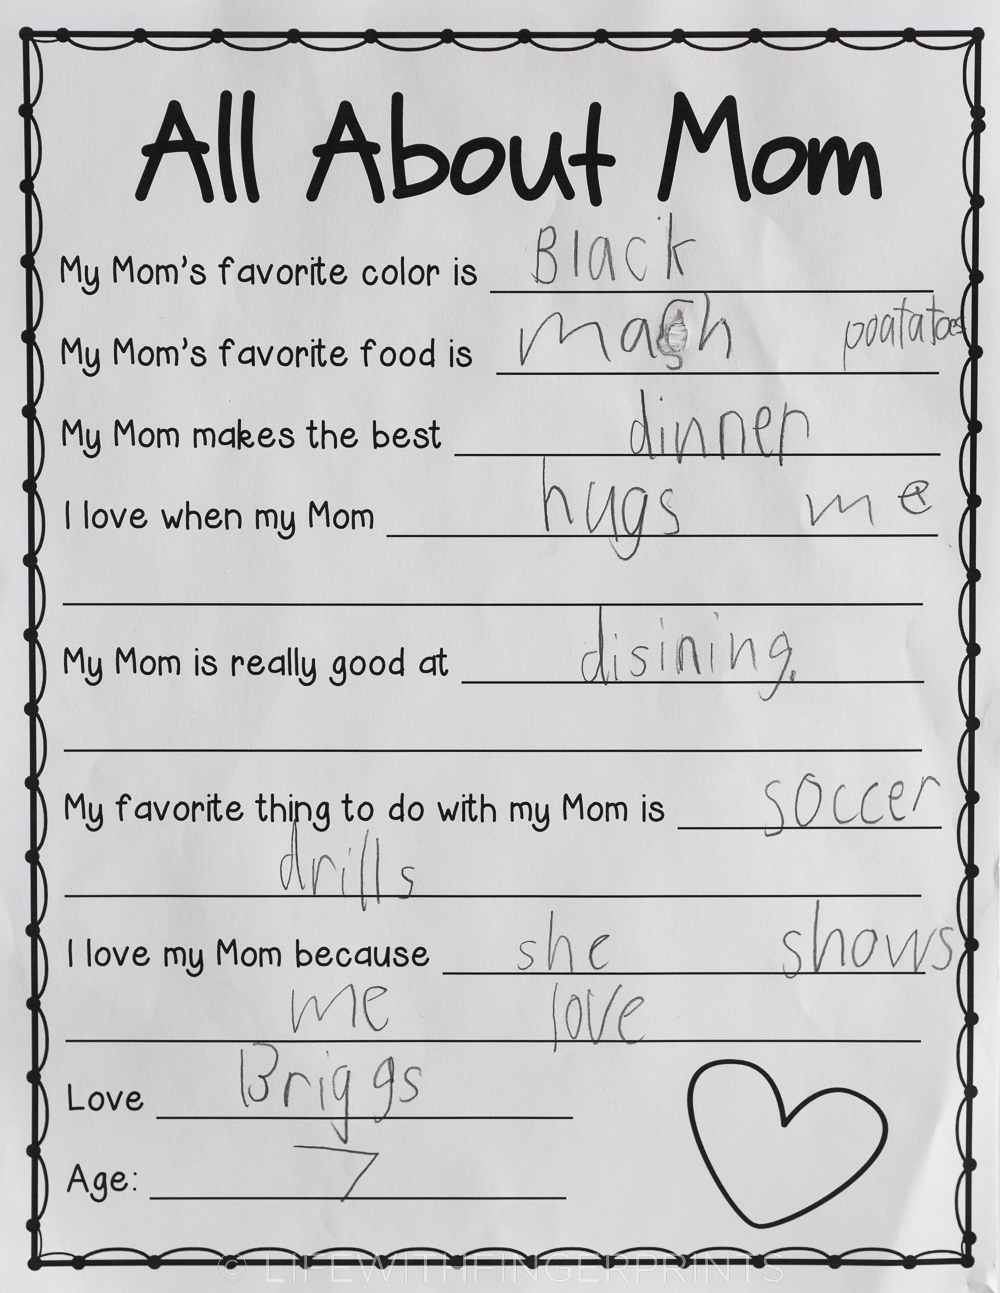 All About Mom
My Mom's favorite color is Black
My Mom's favorite food is mash poatatoes
My Mom makes the best dinner
I love when my Mom hugs me
My Mom is really good at disining.
My favorite thing to do with my Mom is soccer
drills
I love my Mom because she shows
me love
Love Briggs
Age: 7
© LIFEWITHFINGERPRINTS